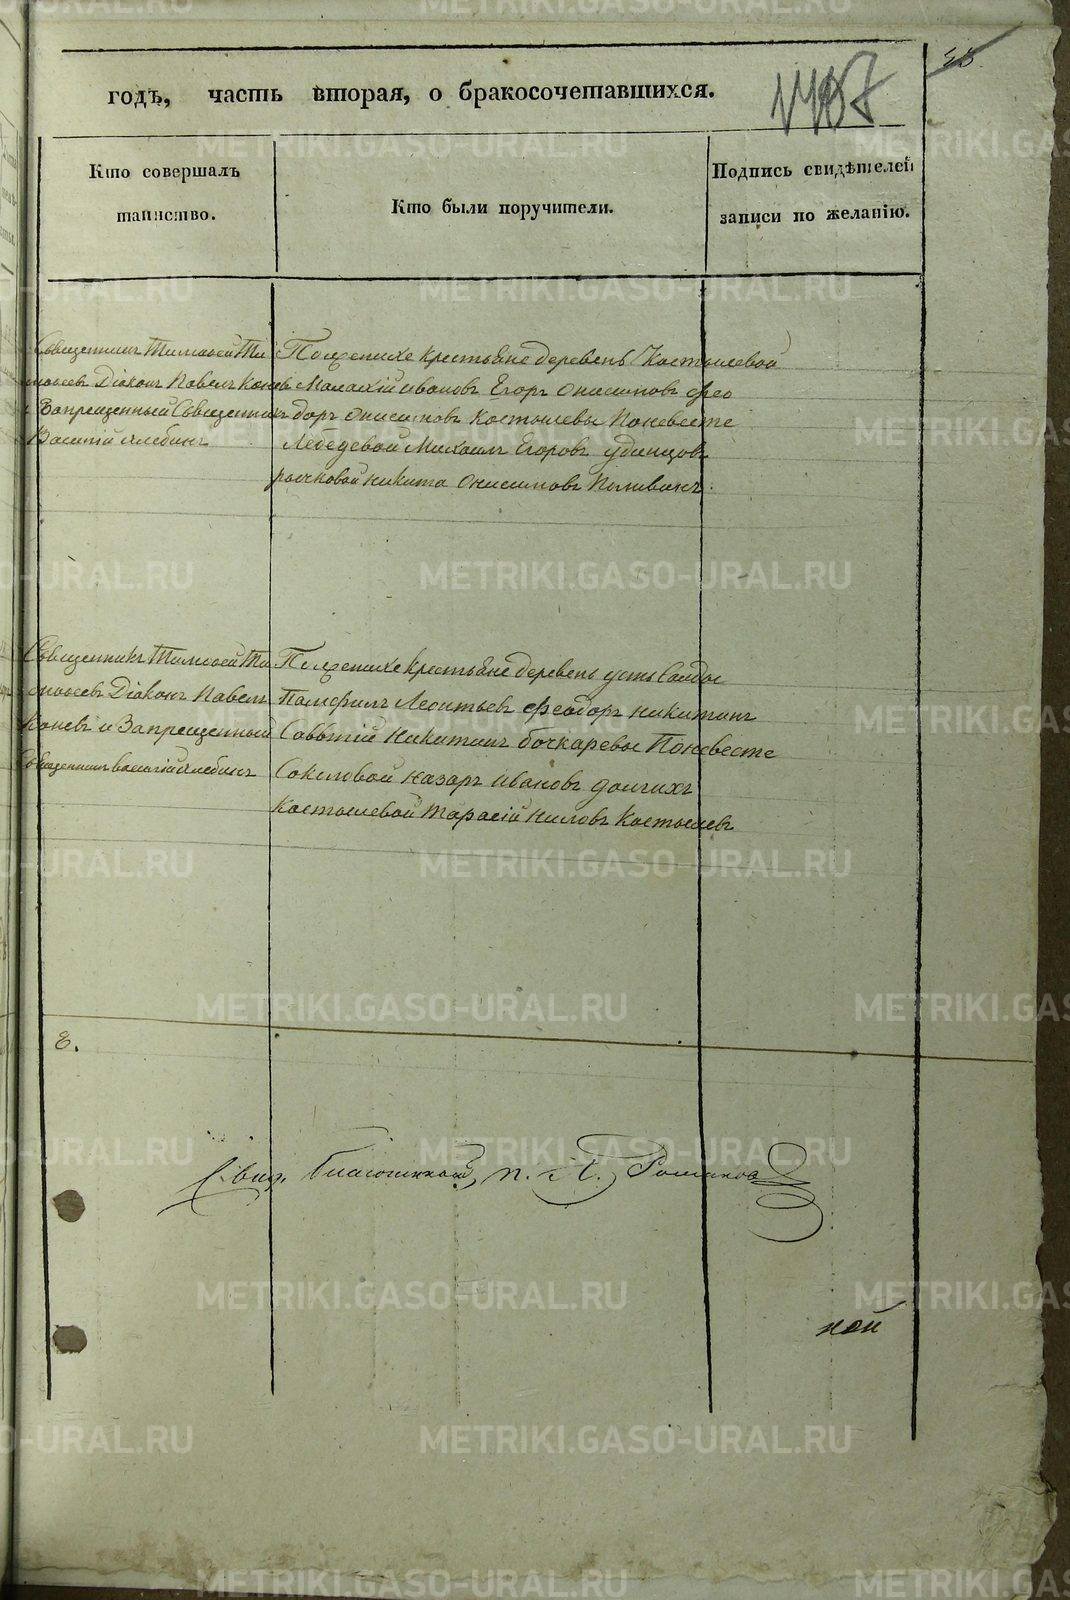 годъ, часть вторая, о бракосочетавшихся.
Кто совершалъ таинство.
Кто были поручители.
Подпись свидѣтелей записи по желанію.
Священникъ Тимофей Ти
мофеевъ Діаконъ Павелъ Коневъ
и Запрещенный Священникъ
Василій
Пожениxе крестьяне деревень Костылевой
Малахій Ивановъ Егоръ Онисимовъ Фео
доръ Онисимовъ Костылевы Поневесте
Лебедевой Михаилъ Егоровъ Удинцовъ
Никита Онисимовъ
Священникъ Тимофей Ти
мофеевъ Діаконъ Павелъ
Коневъ и Запрещенный
Священникъ Василій
Пожениxе крестьяне деревень усть Салды
Памфилъ Леонтьевъ Феодоръ Никитинъ
Савватій Никитинъ Бочкаревы Поневесте
Соколовой Назаръ Ивановъ Долгихъ
Костылевой Тарасій Ниловъ Костылевъ
ной
METRIKI.GASO-URAL.RU